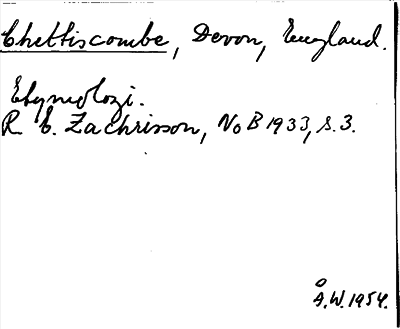 Chettiscombe, Devon, England.
Etymologi.
R. E. Zachrisson, NoB 1933, s. 3.
Å.W. 1954.